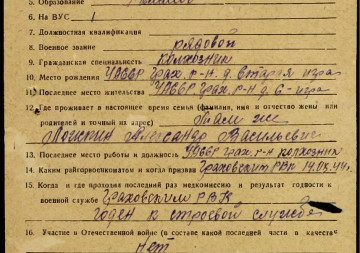 5. Образование
6. На ВУС 1
7. Должностная квалификация
8. Военное звание рядовой
9. Гражданская специальность колхозник
10. Место рождения УАССР Грах. р-н д. Старая игра
11. Последнее место жительства УАССР Грах. р-н д. С-игра
12. Где проживает в настоящее время семья (фамилия, имя и отчество жены или
родителей и точный их адрес) Там же
Александр Васильевич
13. Последнее место работы и должность УАССР Грах. р-н колхозник
14. Каким райгорвоенкоматом и когда призван Граховским РВК 14.
15. Когда и где проходил последний раз медкомиссию и результат годности к
военной службе Граховским РВК
годен к строевой службе
16. Участие в Отечественной войне (в составе какой последней части в качестве
нет